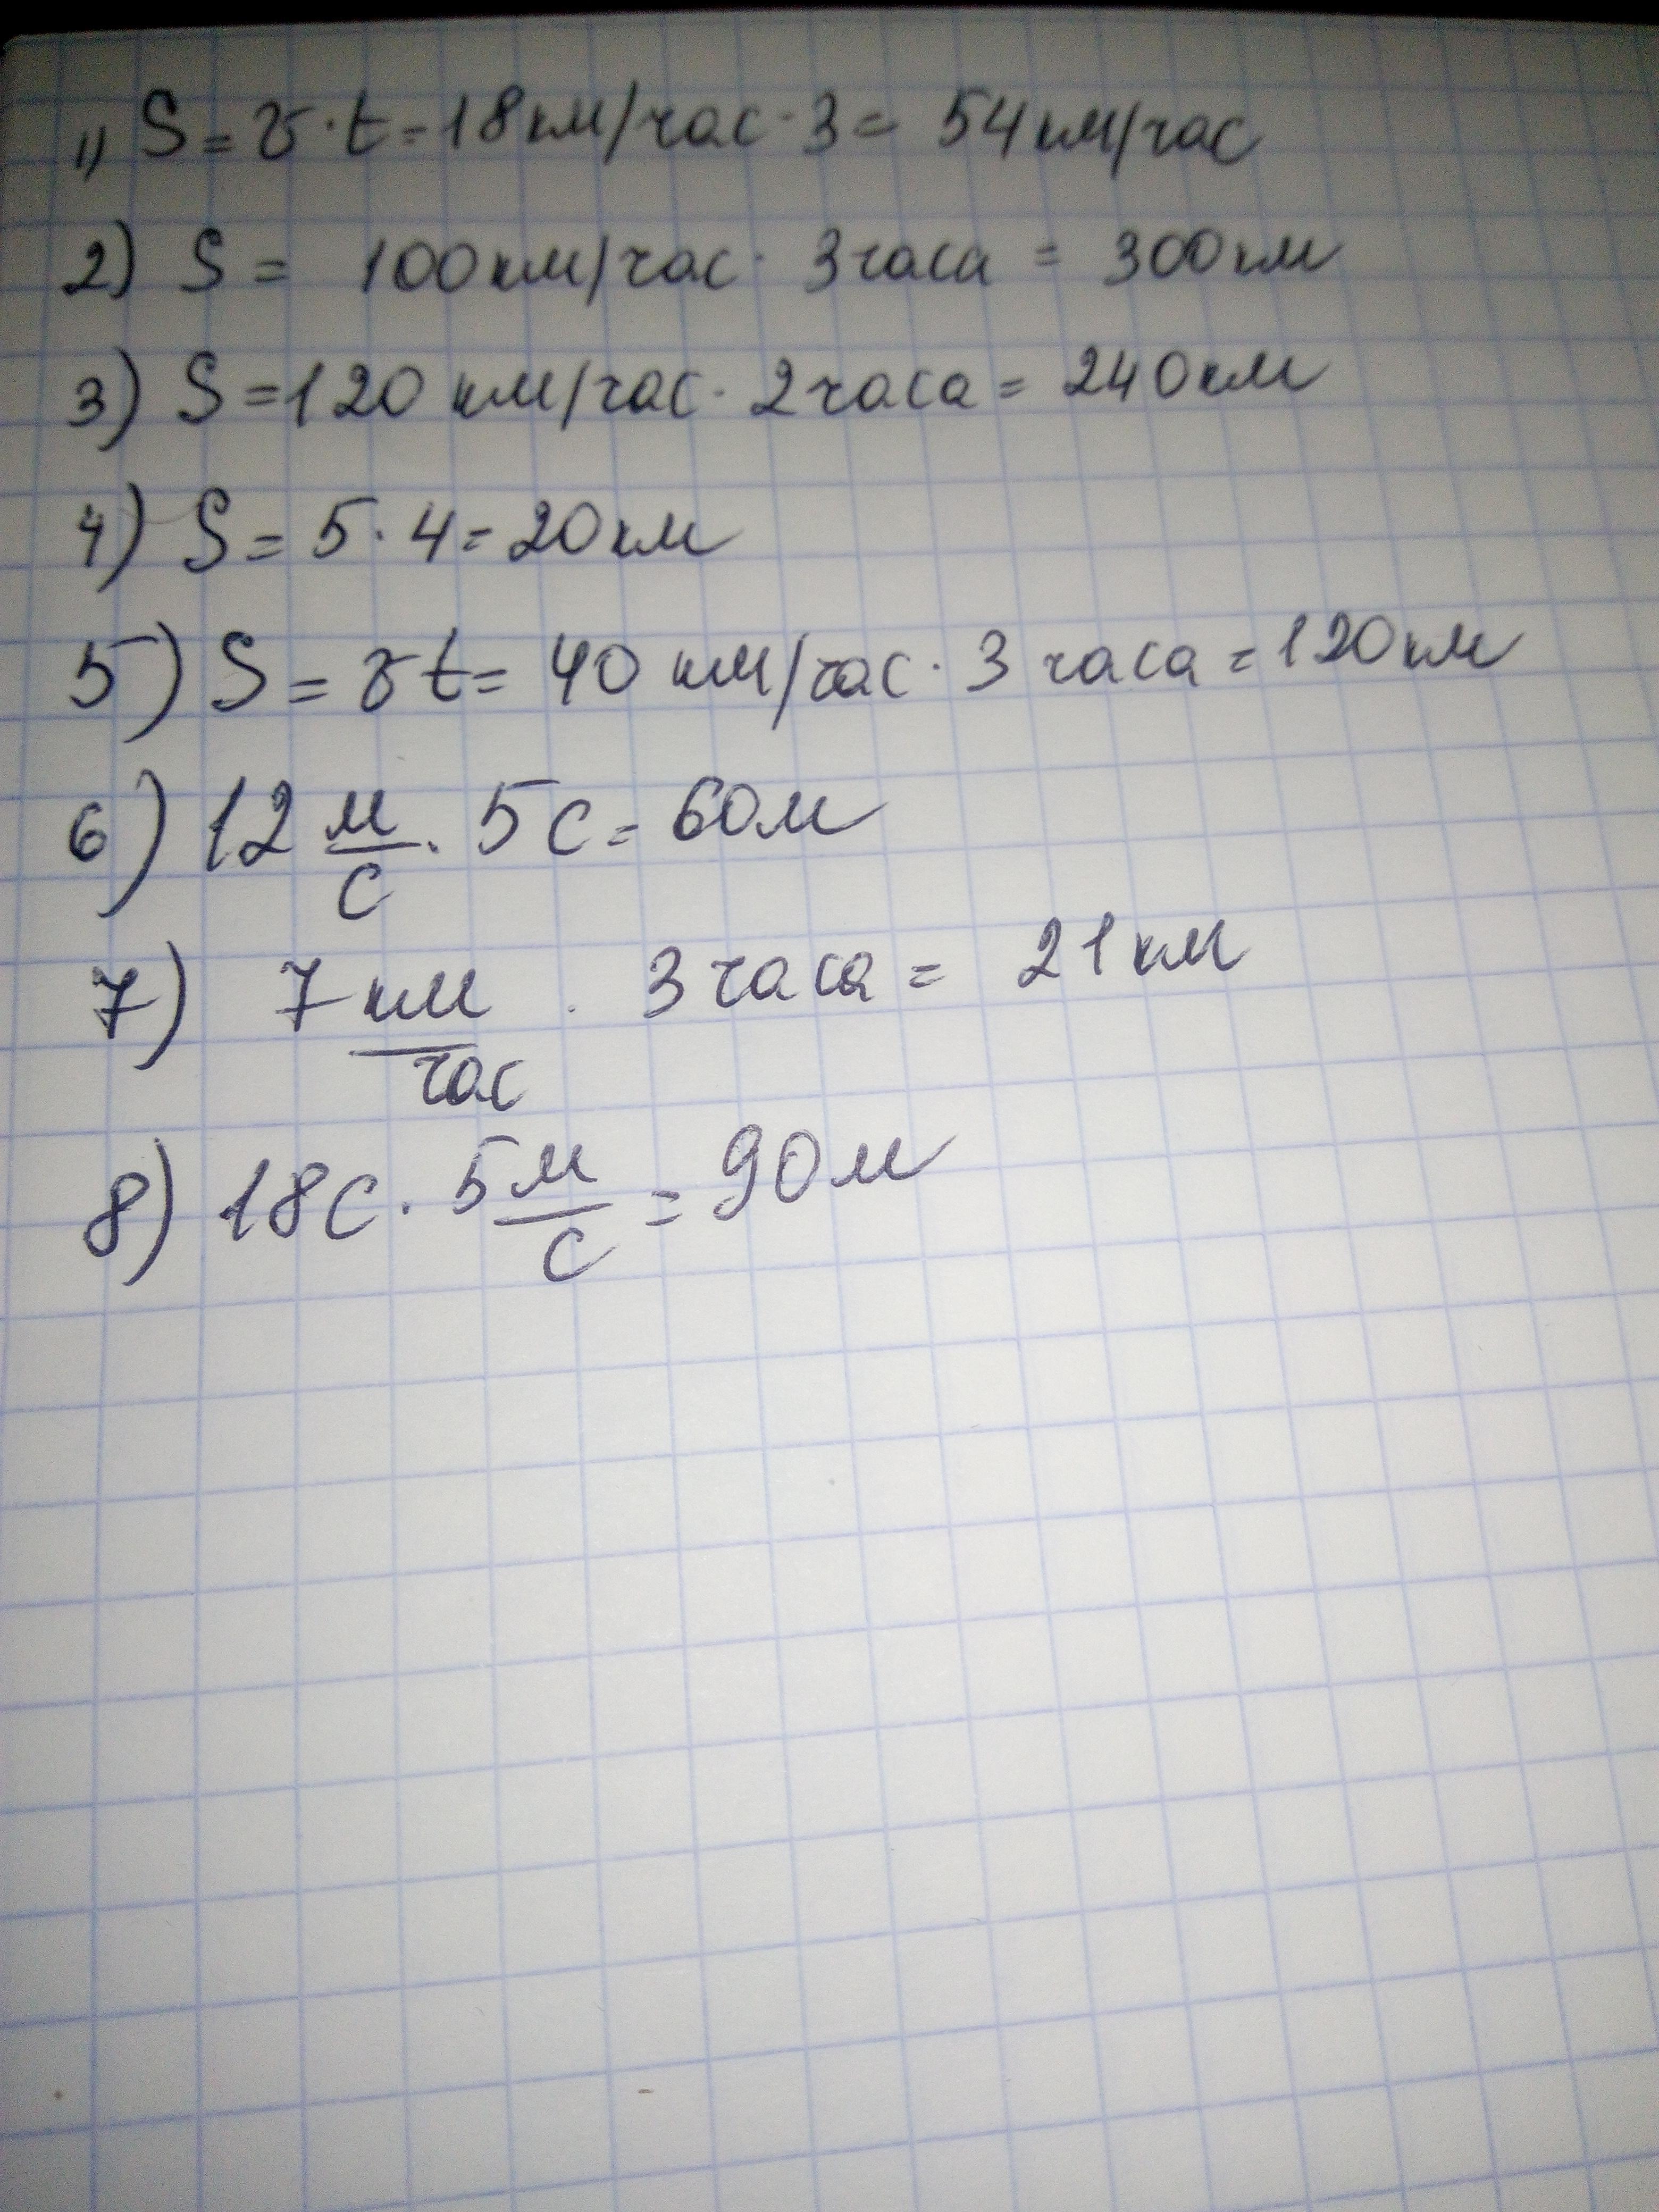 1) S = v · t = 18 км/час · 3 = 54 км/час
2) S = 100 км/час · 3 часа = 300 км
3) S = 120 км/час · 2 часа = 240 км
4) S = 5 · 4 = 20 км
5) S = v t = 40 км/час · 3 часа = 120 км
6) 12 м/с · 5 с = 60 м
7) 7 км/час · 3 часа = 21 км
8) 18 с · 5 м/с = 90 м